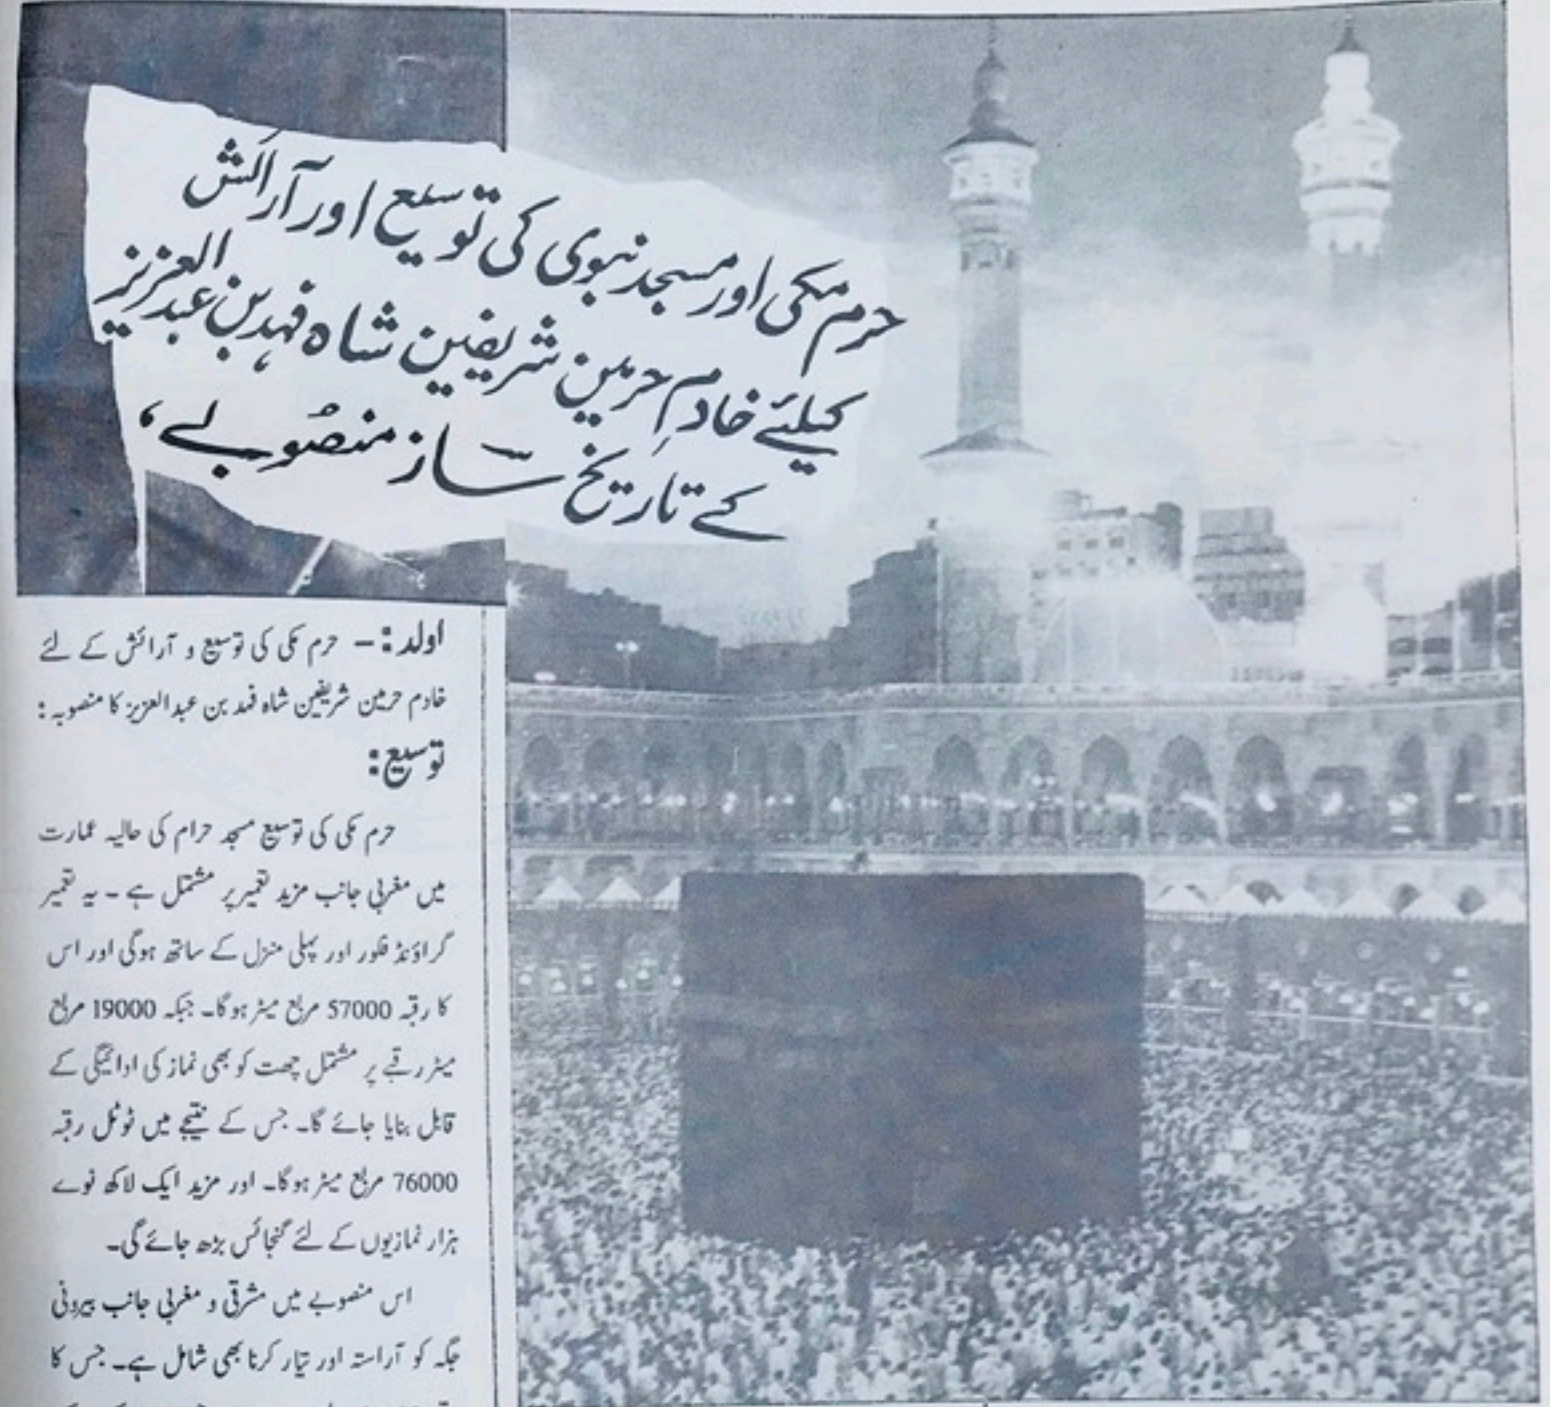 حرم مکی اور مسجد نبوی کی توسیع اور آرائش
کیلئے خادمِ حرمین شریفین شاہ فہد بن عبدالعزیز
کے تاریخ ساز منصُوبے،
اولد:- حرم مکی کی توسیع و آرائش کے لئے
خادم حرمین شریفین شاہ فہد بن عبدالعزیز کا منصوبہ:
توسیع:
حرم مکی کی توسیع مسجد حرام کی حالیہ عمارت
میں مغربی جانب مزید تعمیر پر مشتمل ہے ۔ یہ تعمیر
گراؤنڈ فلور اور پہلی منزل کے ساتھ ہوگی اور اس
کا رقبہ 57000 مربع میٹر ہوگا۔ جبکہ 19000 مربع
میٹر رقبے پر مشتمل چھت کو بھی نماز کی ادائیگی کے
قابل بنایا جائے گا۔ جس کے نتیجے میں ٹوٹل رقبہ
76000 مربع میٹر ہوگا۔ اور مزید ایک لاکھ نوے
ہزار نمازیوں کے لئے گنجائس بڑھ جائے گی۔
اس منصوبے میں مشرقی و مغربی جانب بیرونی
جگہ کو آراستہ اور تیار کرنا بھی شامل ہے۔ جس کا